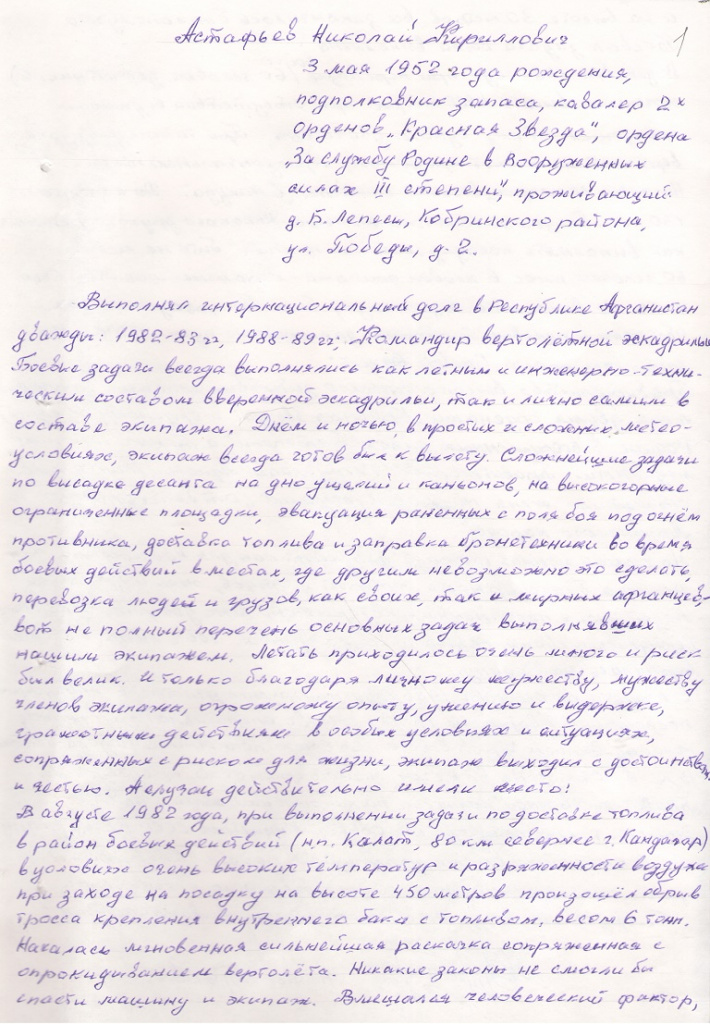 Астафьев Николай Кириллович 1
3 мая 1952 года рождения,
подполковник запаса, кавалер 2х
орденов „Красная Звезда", ордена
„За службу Родине в Вооруженных
силах III степени", проживающий
д. Б. Лепесы, Кобринского района,
ул. Победы, д. 2.
Выполнял интернациональный долг в Республике Афганистан
дважды: 1982-83 гг, 1988-89 гг; Командир вертолётной эскадрильи
Боевые задачи всегда выполнялись как летным и инженерно-техни-
ческим составом вверенной эскадрильи, так и лично самим в
составе экипажа. Днём и ночью, в простых и сложных метео-
условиях, экипаж всегда готов был к вылету. Сложнейшие задачи
по высадке десанта на дно ущелий и каньонов, на высокогорные
ограниченные площадки, эвакуация раненных с поля боя под огнём
противника, доставка топлива и заправка бронетехники во время
боевых действий в местах, где другим невозможно это сделать,
перевозка людей и грузов, как своих, так и мирных афганцев,-
вот не полный перечень основных задач выполнявших
нашим экипажем. Летать приходилось очень много и риск
был велик. И только благодаря личному мужеству, мужеству
членов экипажа, огромному опыту, умению и выдержке,
грамотным действиям в особых условиях и ситуациях,
сопряженных с риском для жизни, экипаж выходил с достоинством
и честью. А случаи действительно имели место:
В августе 1982 года, при выполнении задачи по доставке топлива
в район боевых действий (н.п. Калат, 80 км севернее г. Кандагар)
в условиях очень высоких температур и разряженности воздуха
при заходе на посадку на высоте 450 метров произошёл обрыв
тросса крепления внутреннего бака с топливом, весом 6 тонн.
Началась мгновенная сильнейшая раскачка сопряженная с
опрокидыванием вертолёта. Никакие законы не смогли бы
спасти машину и экипаж. Вмешался человеческий фактор,